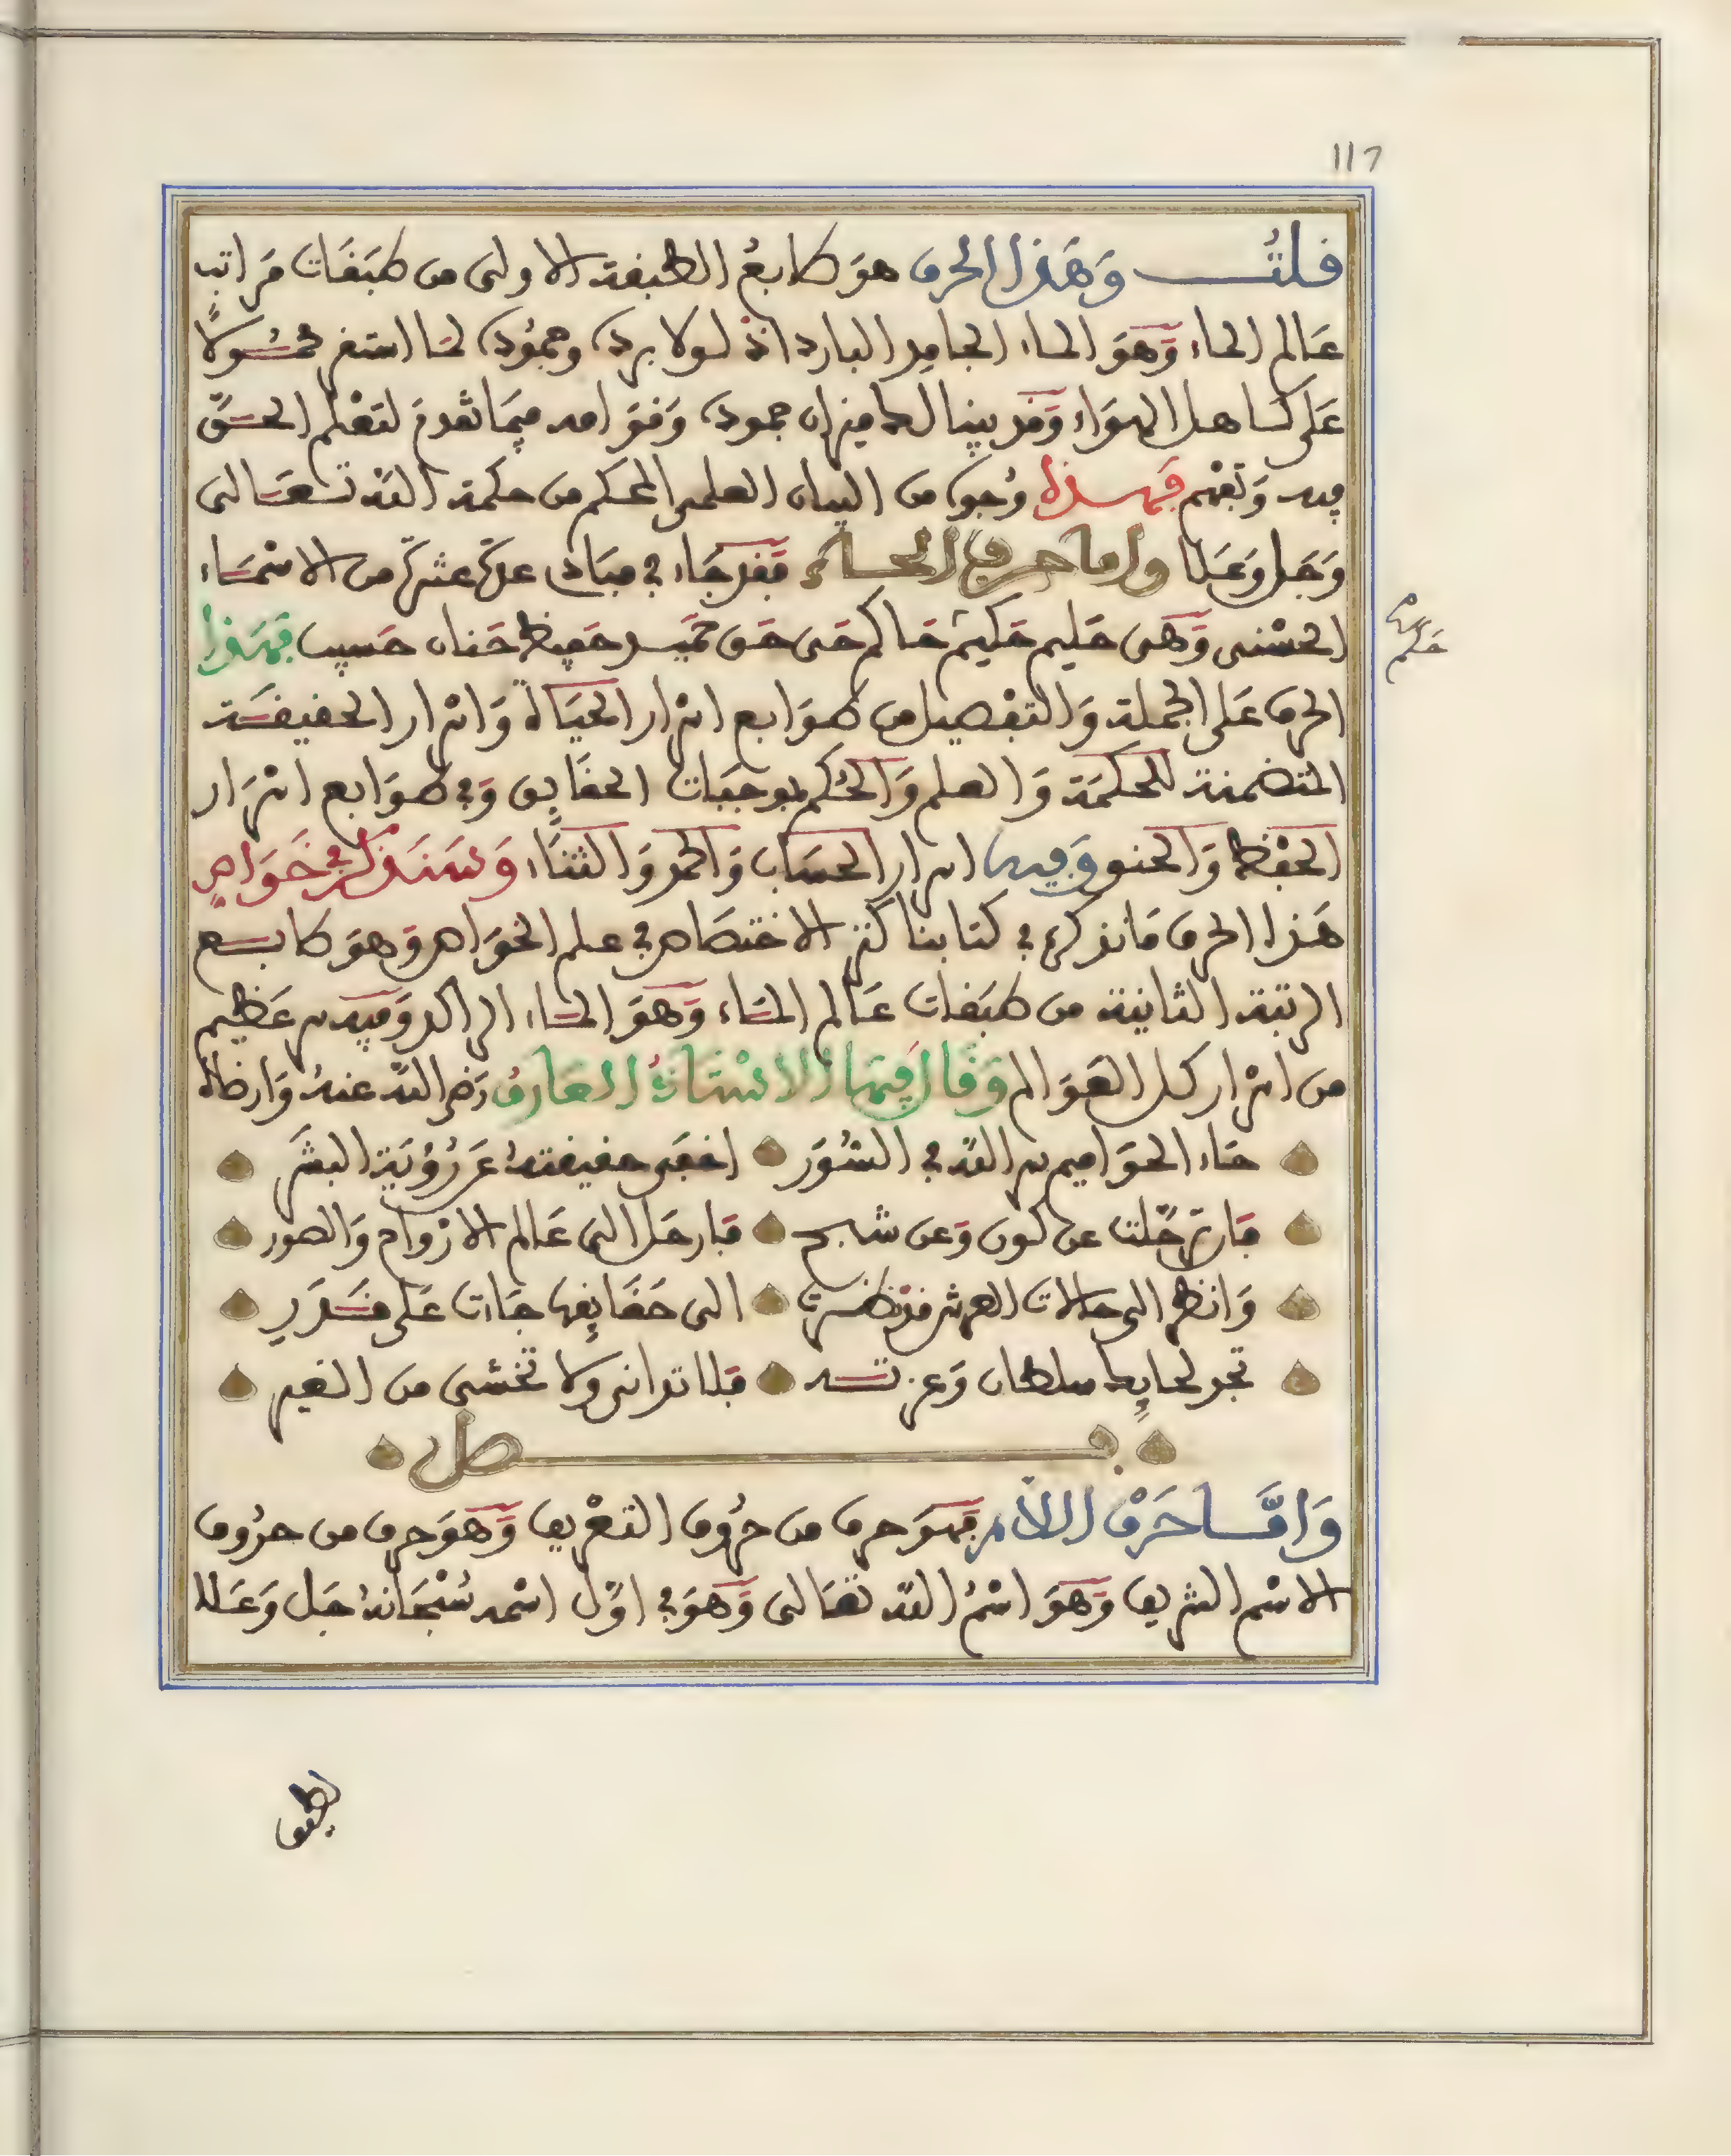 117
قلت وَهَذا الحرف هوَ طابعُ الطبقة الاولى من طبَقَات مَراتب
عَالم الماء وَهوَ الماء الجامِد البارد اذ لولا برده وجمُوده لمَا استقر محمُولا
عَلى كَاهل الهوَاء وَقد بينا لك ميزان جموده وَقوَامه فيمَا تقدم لتَعْلم الحَقّ
فيه وَتفهم فهذه وُجوه من البيان العلمى المحكم من حكمة الله تعَالى
وَجَل وَعَلا واما حرف الحاء فقد جَاء في مبَادى عدة عشرة من الاسْمَاء
الحسْنى وَهى حَليم حَكيم حَاكم حَى حَق حَميد حَفيظ حَنان حَسيب فهَذا
حَكم
الحرف عَلى الجملة وَالتفْصيل من طوَابع اسْرار الحيَاة وَاسْرار الحقيقَة
المتضمنة للحكمَة وَالعلم وَالحُكم بموجبَات الحقَايق وَفي طوَابع اسْرَار
الحفْظ وَالحنو وَفيه اسرار الحسَاب وَالحمد وَالثنَاء وَسَنَذكر في خَوَاص
هَذا الحرف مَا نذكره في كتابنا كنز الاختصَاص في علم الخوَاص وَهوَ طابع
الرتبة الثانية من طبَقات عَالم المَاء وَهوَ المَاء الراكد وَفيه سر عَظيم
من اسْرار كل العَوَالم وَقَالَ فيهَا الاسْتَاذُ العَارفُ رَضى الله عنهُ وَارضَاه
حَاء الحوَاميم سر الله في السُوَر اخفَى حقيقتهُ عَن رُؤْيَة البشَر
فَان ترَحّلت عن كون وَعن شبح فَارحَل الى عَالم الارْواح وَالصور
وَانظر الى حَاملات العرش قد نظرت الى حَقَايقها جَاءت عَلى قَدَر
تجد لحايِك سلطان وَعزته فَلا تدانى ولا تخشى من الغير
فصل
وَامَّا حَرْف اللام فهوَ حرف من حُرُوف التعْريف وَهوَ حرف من حرُوف
الاسْم الشريف وَهوَ اسْمُ الله تعَالى وَهوَ في اوّل اسْمه سُبْحَانهُ جَل وَعَلا
لطيف